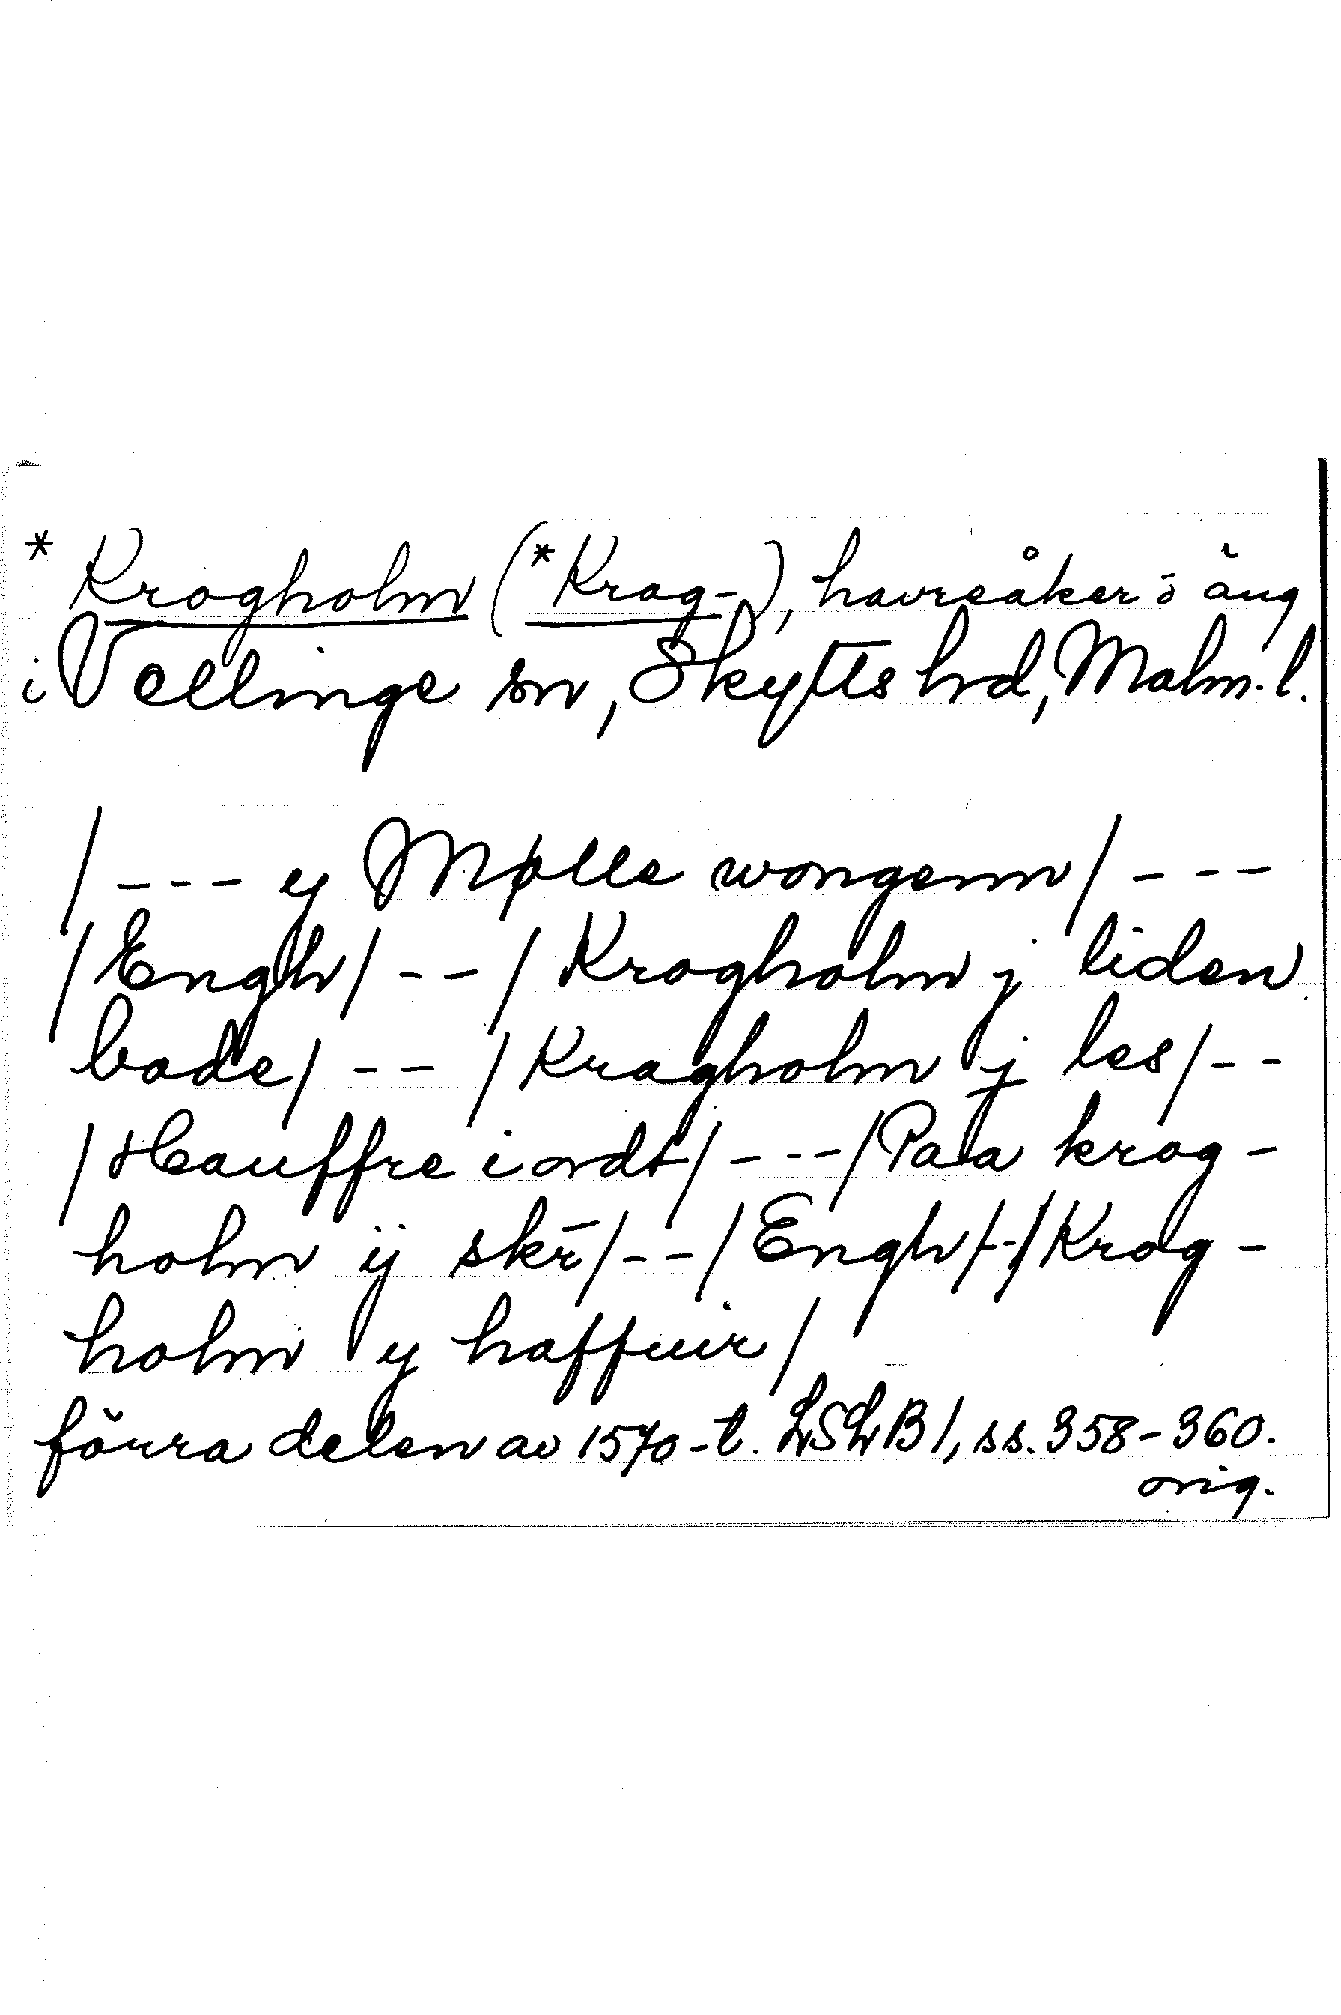 * Krogholm (*Krag-), havreåker o äng
i Vellinge sn, Skytts hrd, Malm. l.
/--- y Mølle wongenn/---
/Engh/--/Krogholm j liden
bode/--/Kragholm j les/--
/Hauffre iordt/---/Paa krog-
holm ij skr̄/--/Engh/--/Krog-
holm y haffuir/
förra delen av 1570-t. LSLB 1, ss. 358-360.
orig.